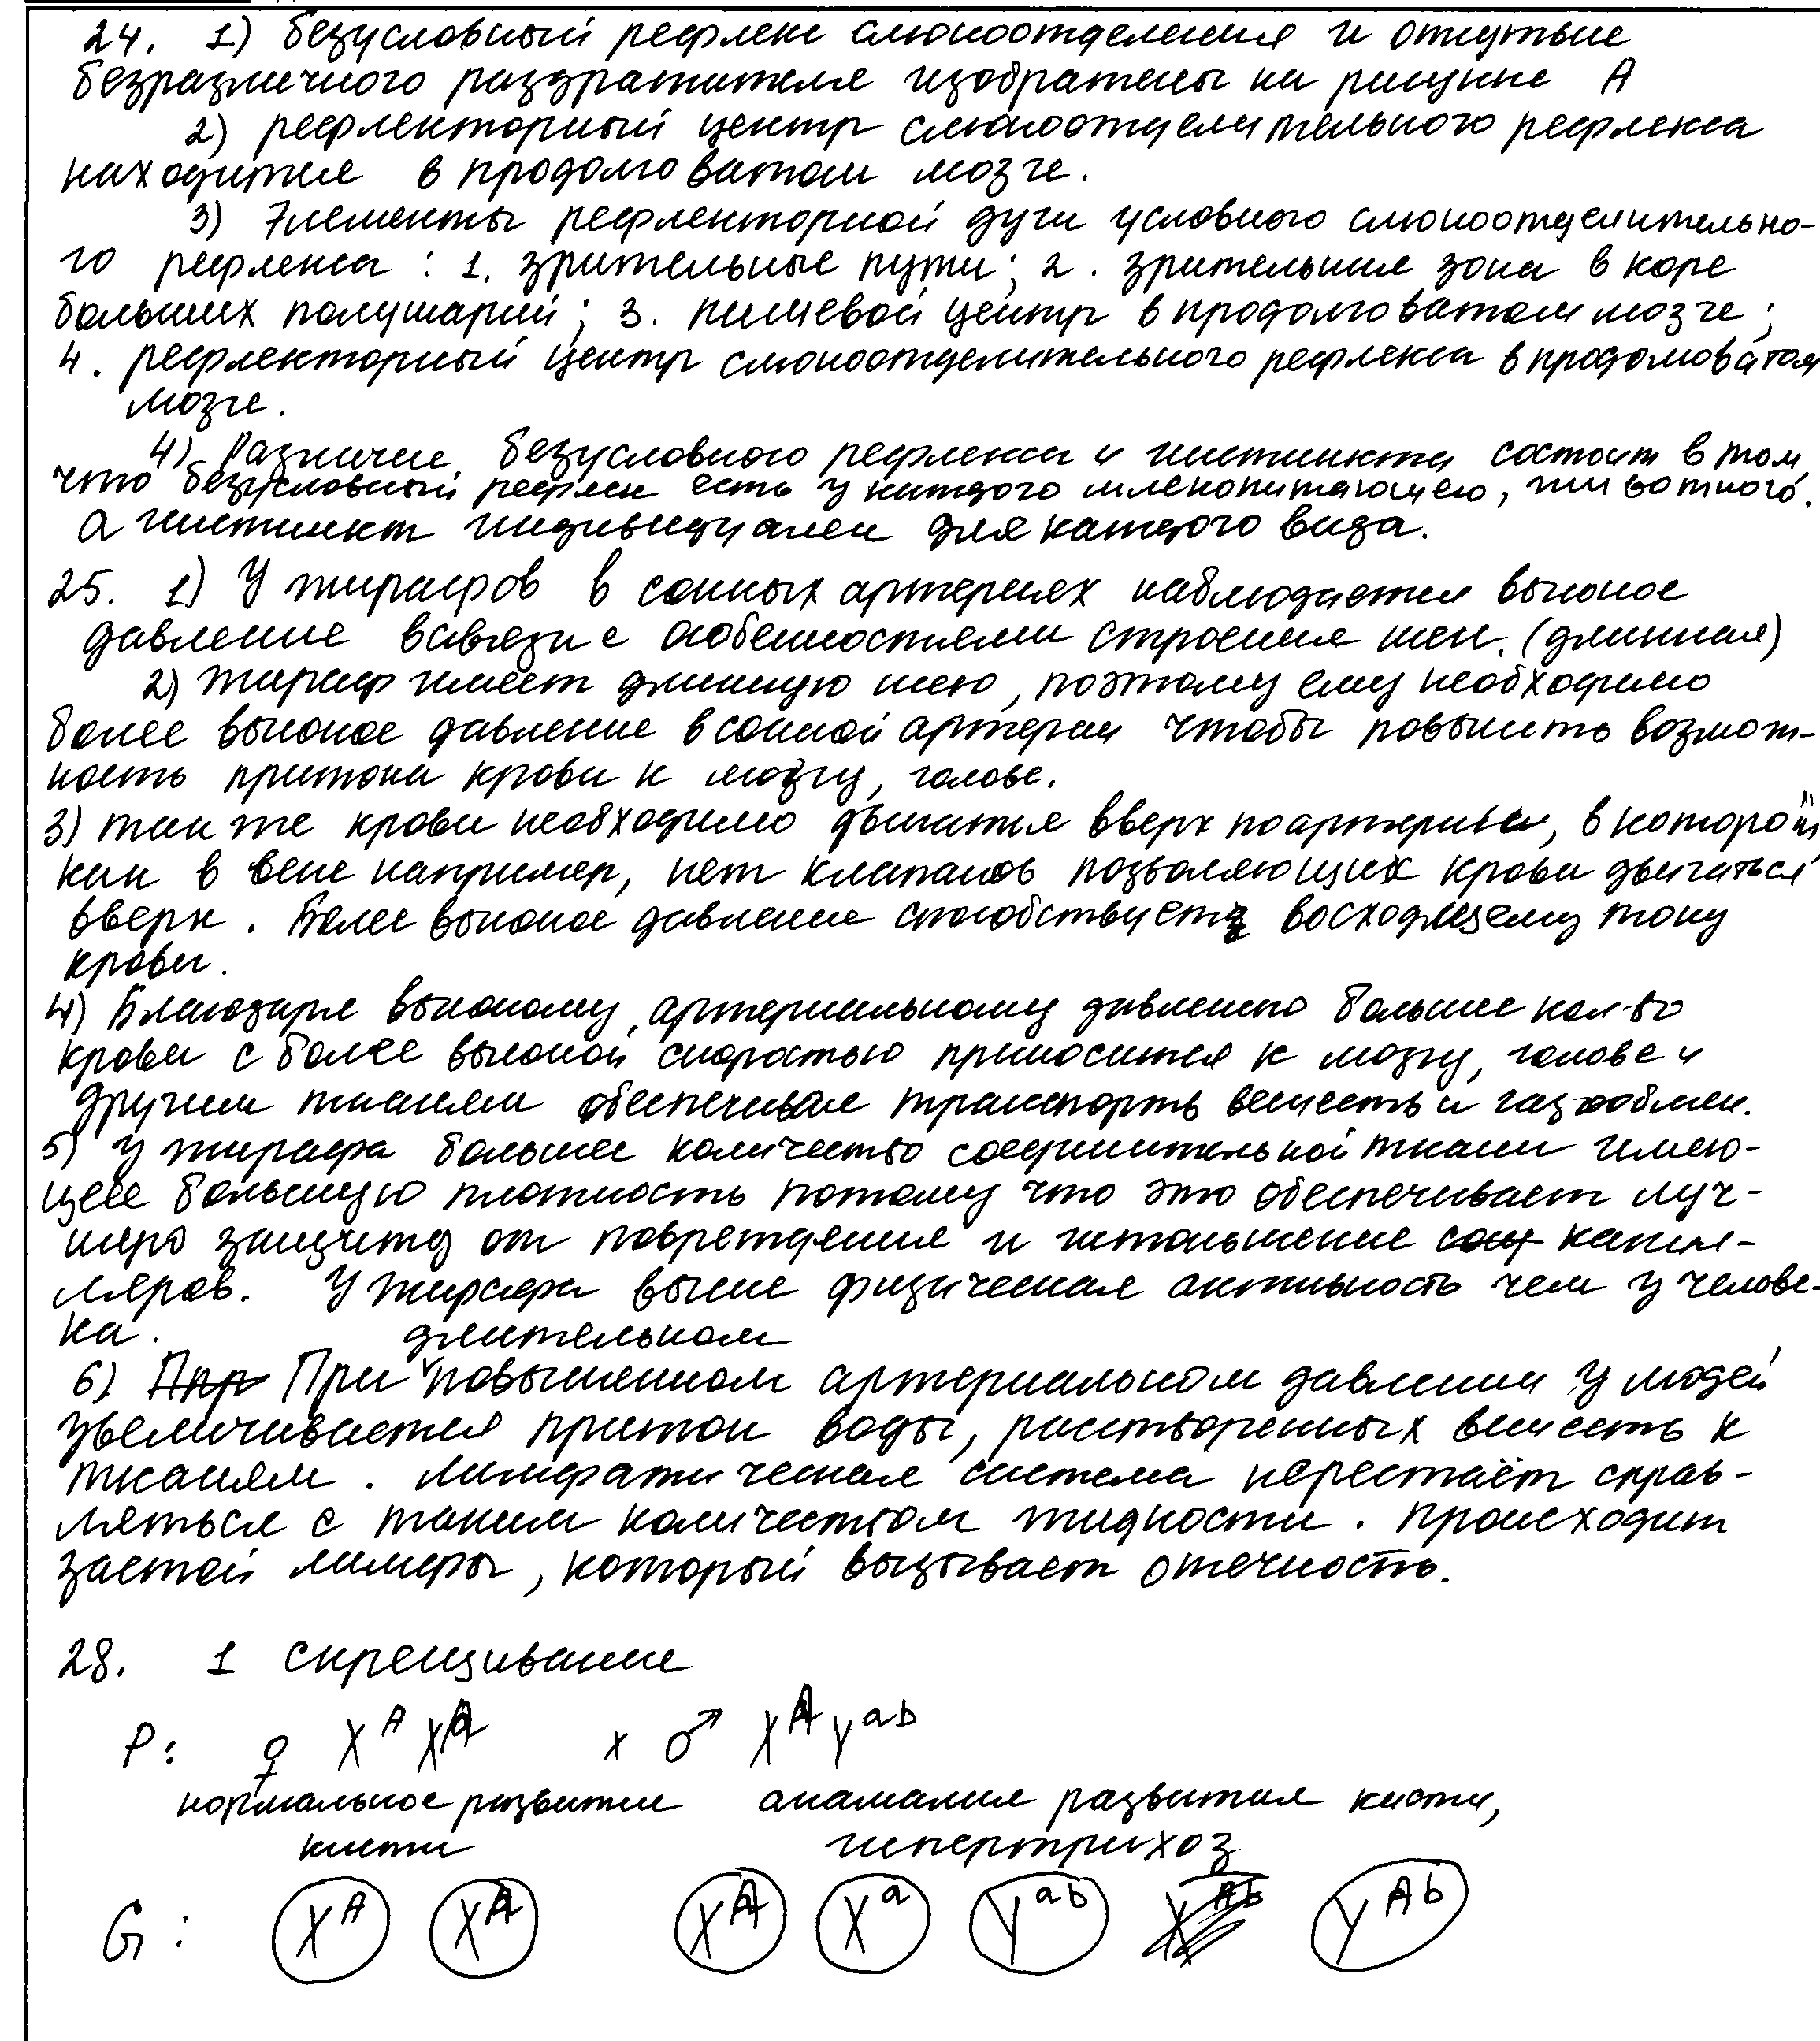 24. 1) безусловный рефлекс слюноотделения и отсутствие
безразличного раздражителя изображены на рисунке А
2) рефлекторный центр слюноотделительного рефлекса
находится в продолговатом мозге.
3) Элементы рефлекторной дуги условного слюноотделительно-
го рефлекса: 1. зрительные пути; 2. зрительная зона в коре
больших полушарий; 3. пищевой центр в продолговатом мозге;
4. рефлекторный центр слюноотделительного рефлекса в продолговатом
мозге.
4) Различие безусловного рефлекса и инстинкта состоит в том,
что безусловный рефлекс есть у каждого млекопитающего, животного.
а инстинкт индивидуален для каждого вида.
25. 1) У жирафов в сонных артериях наблюдается высокое
давление в связи с особенностями строения шеи. (длинная)
2) жираф имеет длинную шею, поэтому ему необходимо
более высокое давление в сонной артерии чтобы повысить возмож-
ность притока крови к мозгу, голове.
3) также крови необходимо двигатся вверх по артерии, в которой
как в вене например, нет клапанов позволяющих крови двигаться
вверх. Более высокое давление способствует восходящему току
крови.
4) Благодаря высокому артериальному давлению большее кол-во
крови с более высокой скоростью приносится к мозгу, голове и
другим тканям обеспечивая транспорть веществ и газообмен.
5) у жирафа большее количество соединительной ткани имею-
щее большую плотность потому что это обеспечивает луч-
шую защиту от повреждения и капил-
ляров. У жирафа выше физическая активность чем у челове-
ка.
6) При длительном повышенном артериальном давлении у людей
увеличивается приток воды, растворенных веществ к
тканям. Лимфатическая система перестаёт справ-
ляться с таким количеством жидкости. Происходит
застой лимфы, который вызывает отечность.
28. 1 скрещивание
P: ♀ X^A X^A x ♂ X^A Y^ab
нормальное развитие анамалия развития кисти,
кисти гипертрихоз
G: X^A X^A X^A X^a Y^ab Y^Ab